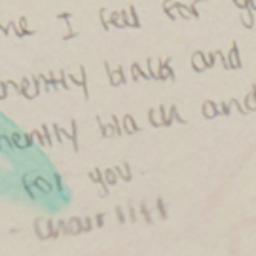 me I feel for yo
nently black and
nently black and
for you.
- Chairlift